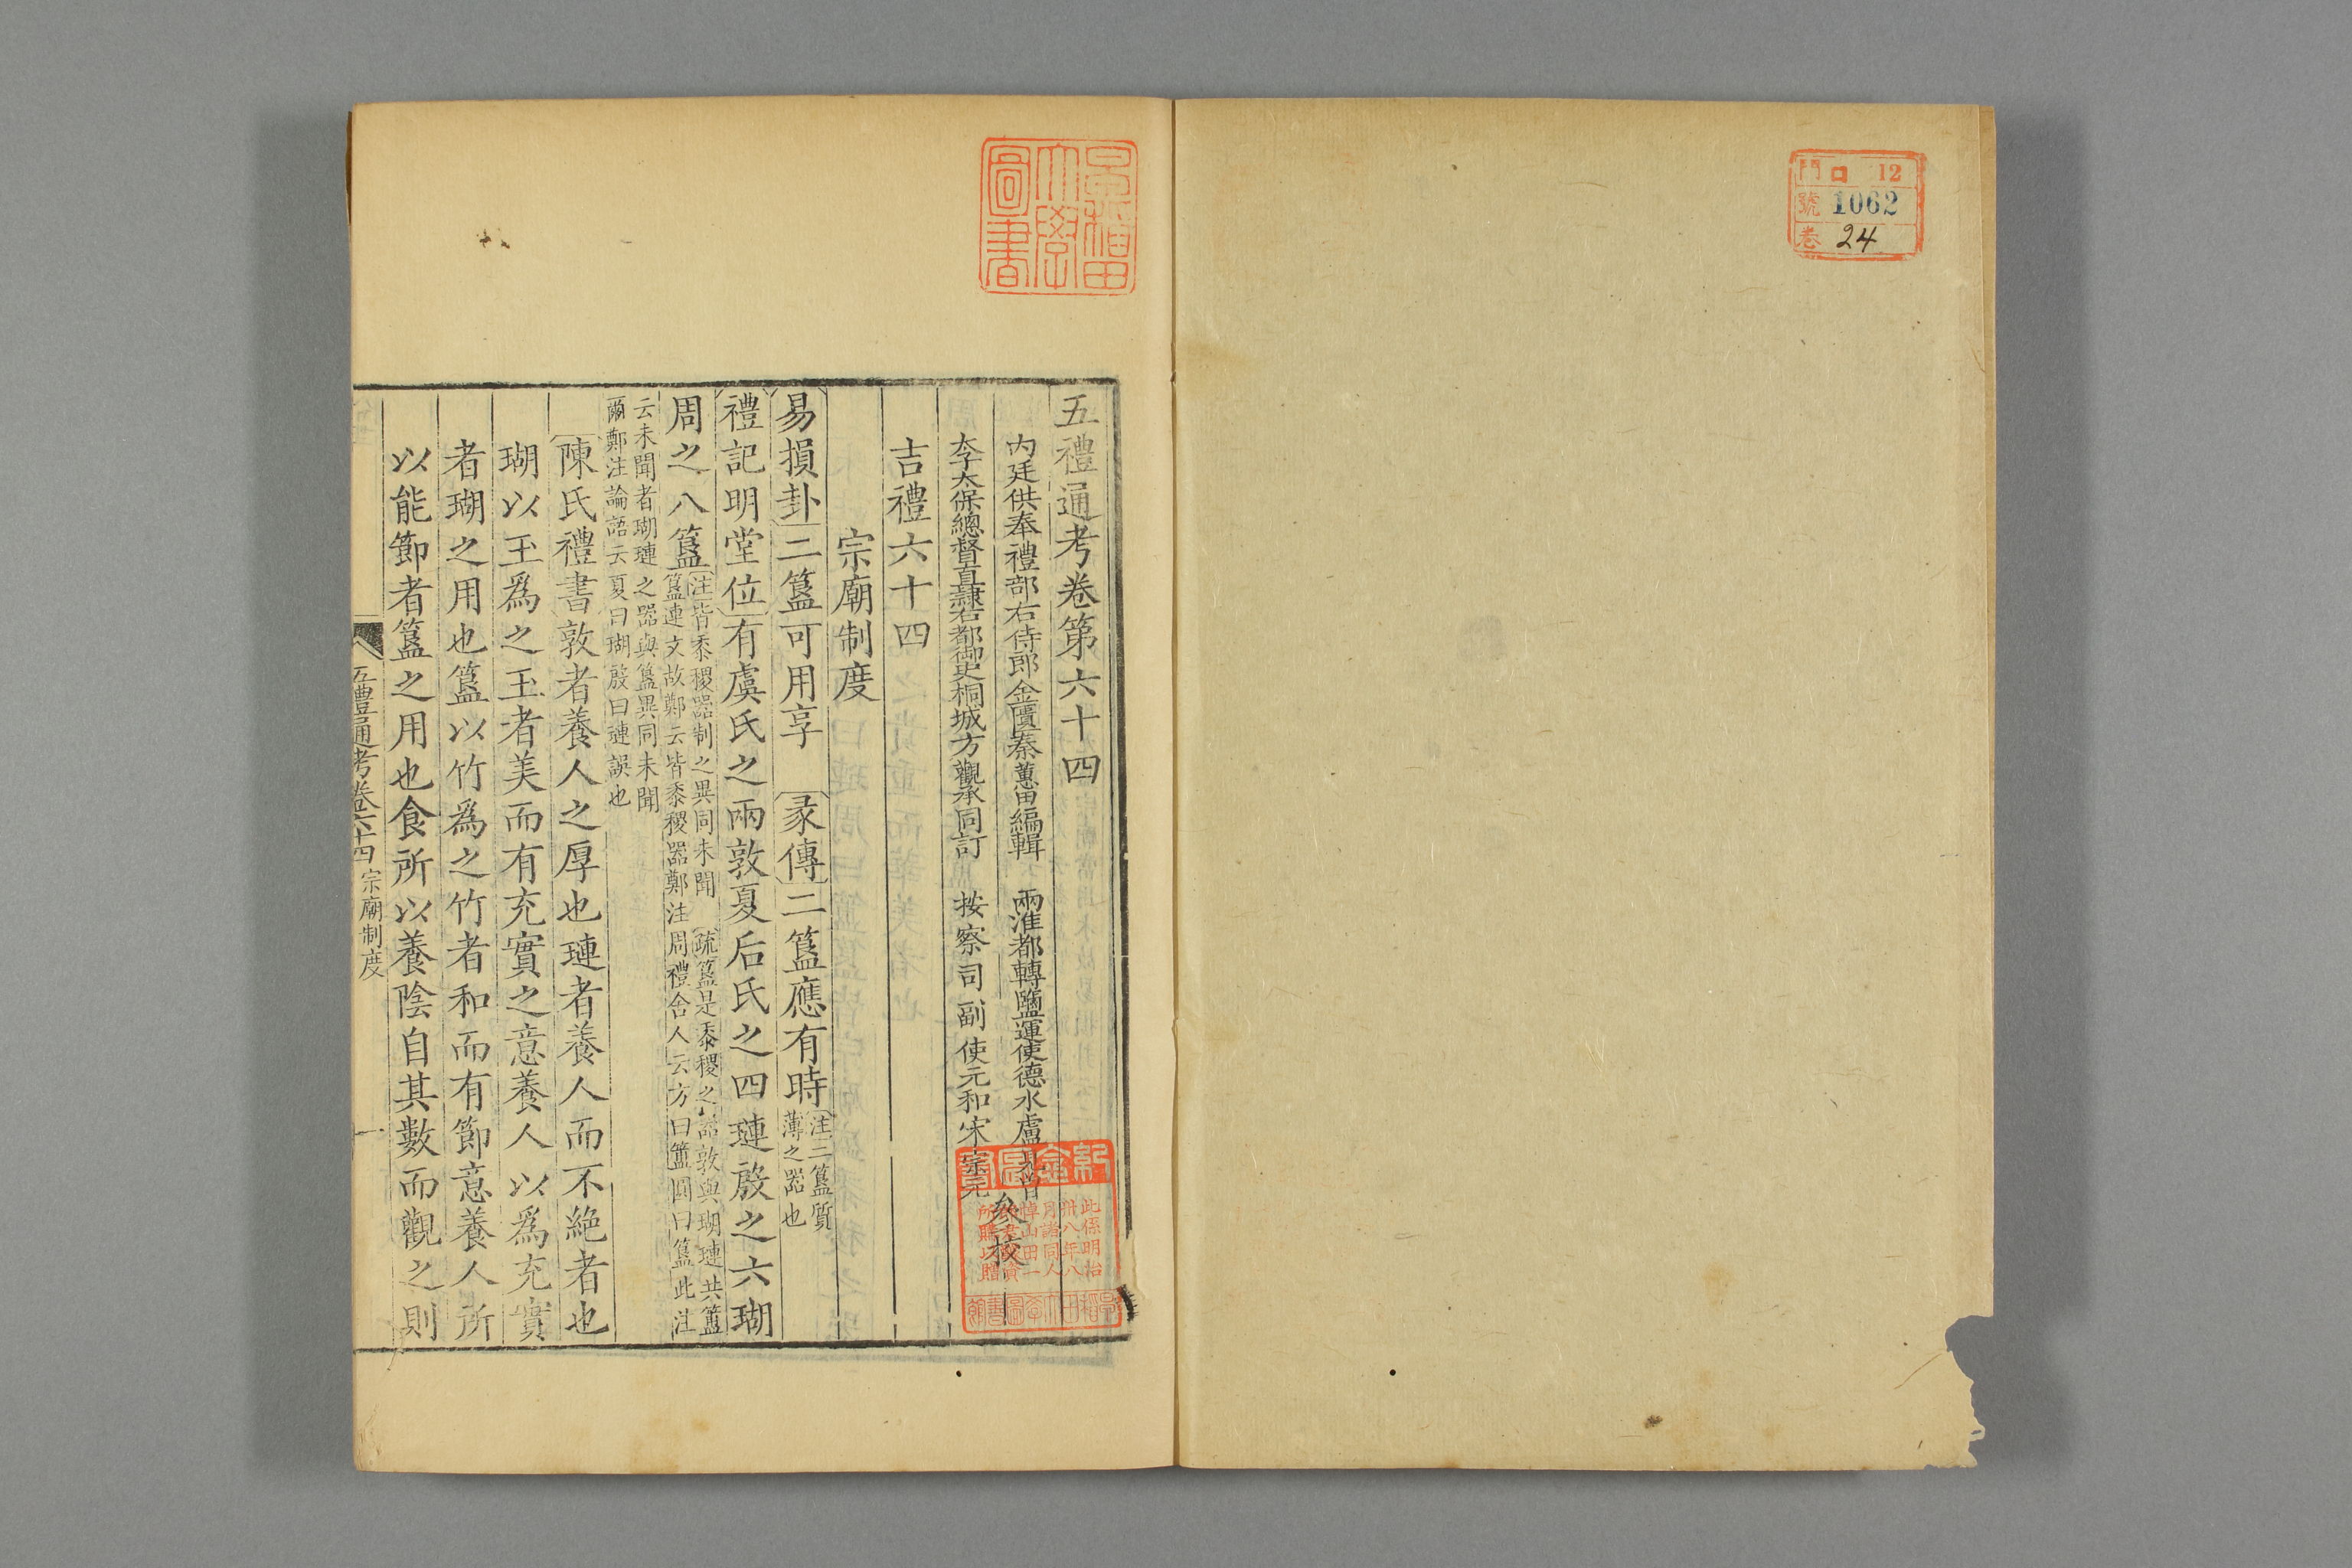 門 口 12
號 1062
卷 24
早稲田大學圖書
五禮通考卷第六十四
内廷供奉禮部右侍郎金匱秦蕙田編輯 兩淮都轉鹽運使德水盧見曾
太子太保總督直隷右都御史桐城方觀承同訂 按察司副使元和宋宗元
參校
吉禮六十四
宗廟制度
易損卦二簋可用享 彖傳二簋應有時注二簋質
薄之器也
禮記明堂位有虞氏之兩敦夏后氏之四璉殷之六瑚
周之八簋注皆黍稷器制之異同未聞 疏簋是黍稷之器敦與瑚璉共簋
簋連文故鄭云皆黍稷器鄭注周禮舍人云方曰簠圓曰簋此注
云未聞者瑚璉之器與簋異同未聞
爾鄭注論語云夏曰瑚殷曰璉誤也
陳氏禮書敦者養人之厚也璉者養人而不絶者也
瑚以玉爲之玉者美而有充實之意養人以爲充實
者瑚之用也簋以竹爲之竹者和而有節意養人所
以能節者簋之用也食所以養陰自其數而觀之則
五禮通考卷六十四 宗廟制度 一
此係明治
卅八年八
月諸同人
悼山田一
所購以贈